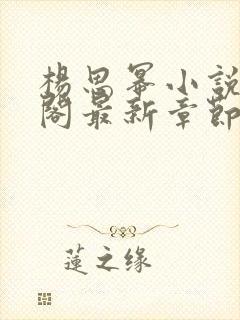 楊思冪小說
閣最新章節
蓮之缘